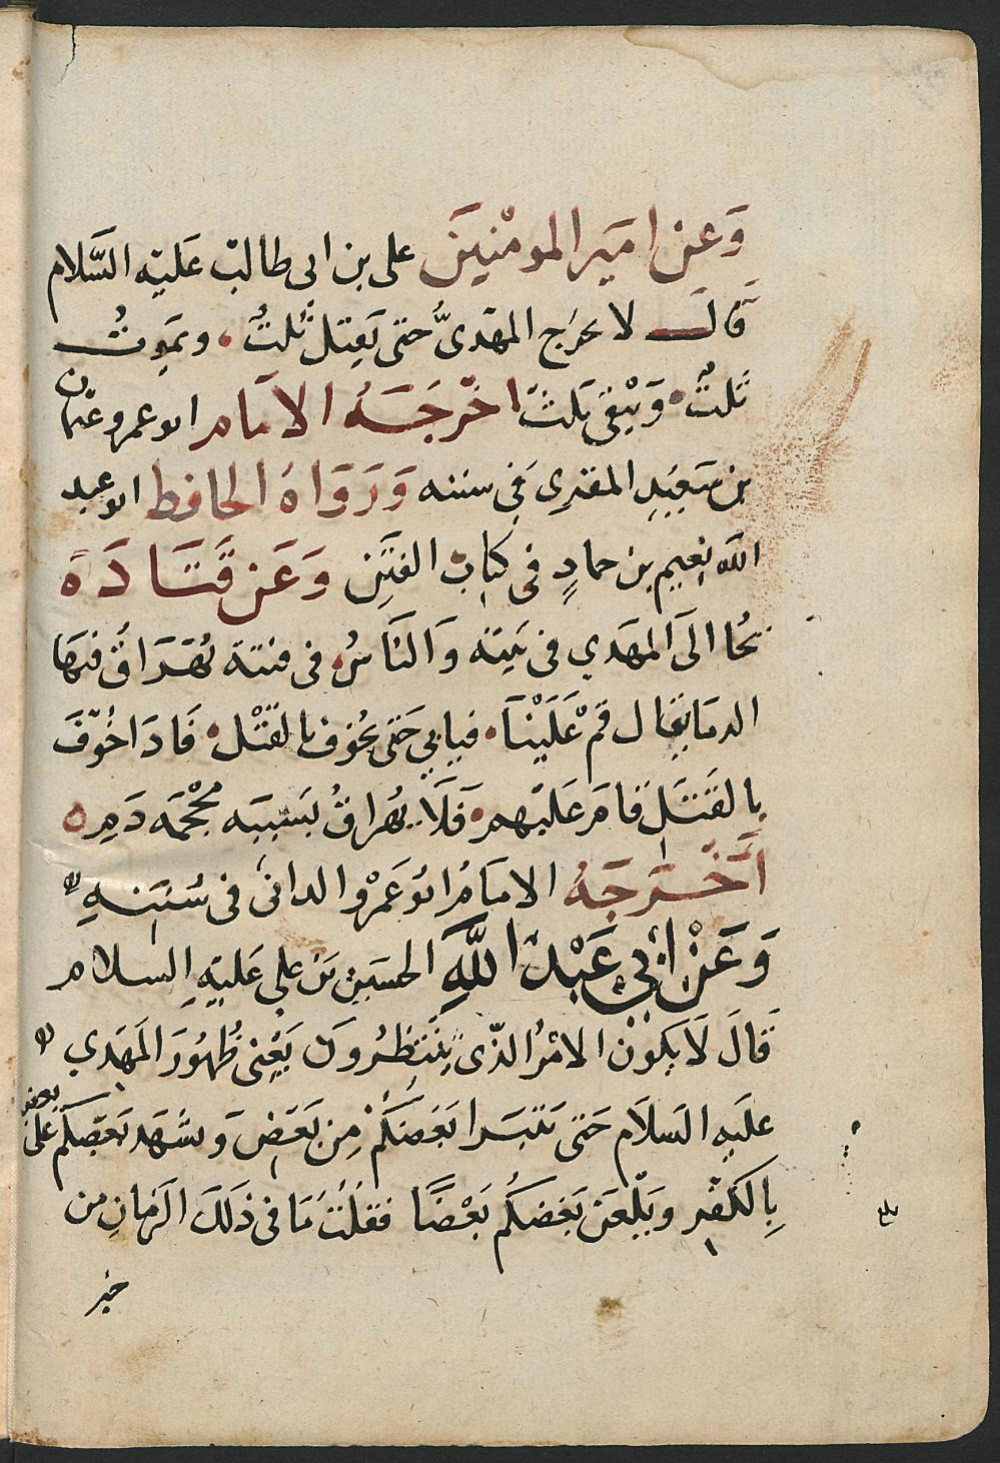 وَعن امير المومْنينَ على بن ابى طالب عَليْه السَّلام
قَالَ لا يخرَج المهْدىُّ حتى يَقتل ثُلثٌ ويمَوتُ
ثلثٌ وَيبْقى ثلثٌ اخْرَجَهُ الامَام ابو عمرو عثمان
بن سَعيْدِ المقرِي فى سننه وَرَوَاهُ الحافظ ابو عبد
الله نعيم بن حمادٍ فى كتاب الفتَن وَعَن قَتَادَة
يُجَا الَى المهَدي فى بَيته وَالنَاسُ فى فتنة تُهَرَاقُ فيهَا
الدمَا يقال قمْ عَلَيْنَا فيابي حَتى يُخوف بالقَتْل فَادَا خُوّفَ
بالقَتَلِ قامَ عَليْهم فَلَا يُهرَاقُ بسَببِه مِحْجَمَة دَمِ ه
اَخْرَجَهُ الامَامُ ابُو عَمْرو الدانى فى سُنَنِهِ
وَعَنْ اَبي عَبْد اللَّهِ الحسَين بن علي عَليْهِ السلام
قَالَ لَا يَكوُنُ الامْرُ الذّى يَنْتَظِرُونَ يَعْنى ظُهُورَ المَهَدي
علَيهِ السَلَام حَتى يَتبَرا بَعْضكُمْ مِن بَعَضٍ وَيشَهَد بَعَضكُم على بعض
بِالكفْرِ وَيَلْعَن بَعْضكُم بَعْضًا فقلْتُ مَا فى ذَلكَ الزمَانِ من
خير